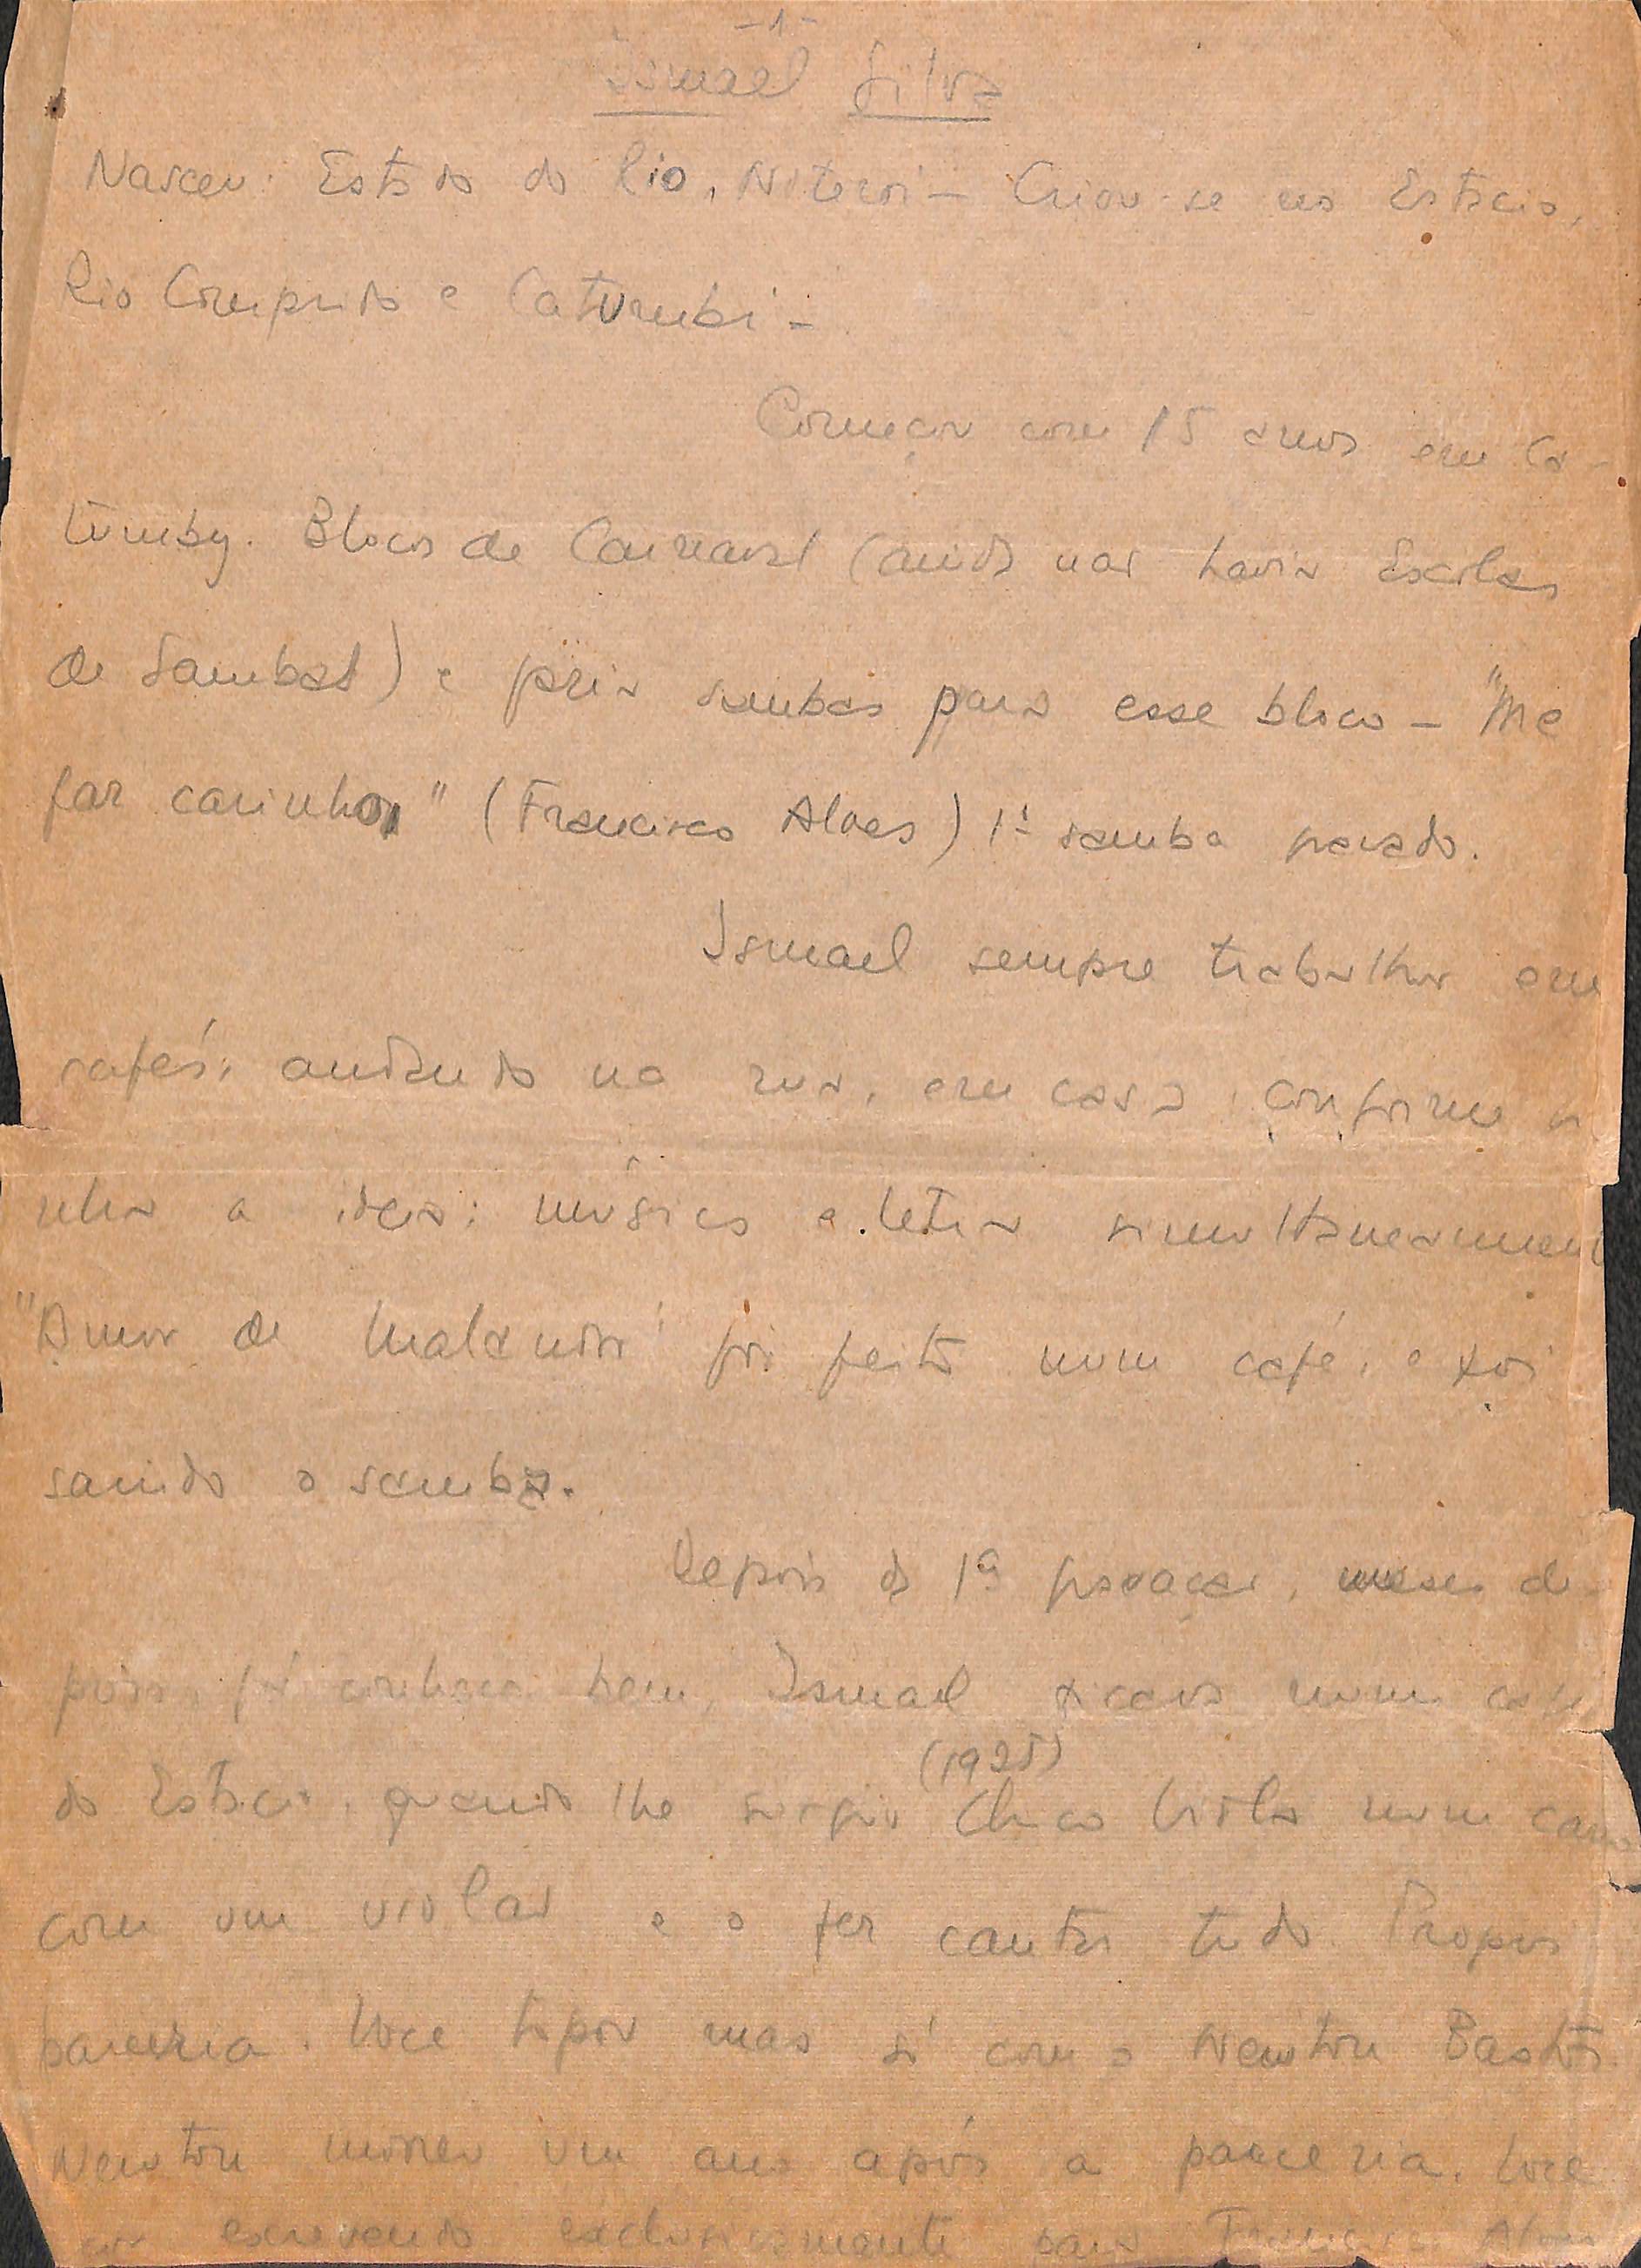 -1-
Ismael Silva
Nasceu: Estado do Rio, Niteroi - Criou-se no Estacio,
Rio Comprido e Catumbi -
Começou com 15 anos em Ca-
tumby. Blocos de Carnaval (ainda não havia Escolas
de Sambas) e fazia sambas para esse bloco - "Me
faz carinhos" (Francisco Alves) 1º samba gravado.
Ismael sempre trabalhou em
cafés, andando na rua, em casa, conforme vi
nha a ideia: música e letra simultaneament
"Amor de Malandro" foi feito num café, e foi
saindo o samba.
Depois da 1ª gravação, meses de
pois, já conhecia bem, Ismael ficava num café
do Estacio, quando lhe surgiu Chico Viola num carro
(1925)
com um violão e o fez cantar tudo. Propos
parceria. Voce topou mas só com o Newton Bastos.
Newton morreu um ano após a parceria. Voce
escrevendo exclusivamente para Francisco Alves